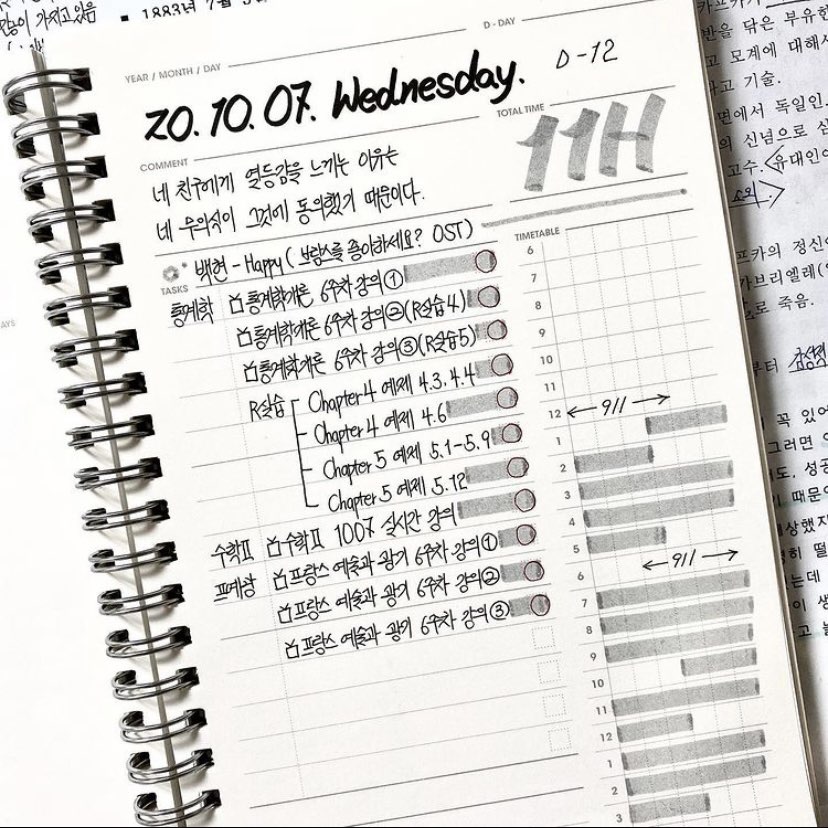 민중이 가지고 있음
D - DAY
YEAR / MONTH / DAY
20. 10. 07. Wednesday.
D-12
COMMENT
네 친구에게 열등감을 느끼는 이유는
네 무의식이 그것에 동의했기 때문이다.
TOTAL TIME
11H
백현 - Happy ( 브람스를 좋아하세요? OST)
TASKS
통계학 통계학개론 6주차 강의①
통계학개론 6주차 강의②(R실습4)
통계학개론 6주차 강의③(R실습5)
R실습 Chapter 4 예제 4.3, 4.4
Chapter 4 예제 4.6
Chapter 5 예제 5.1-5.9
Chapter 5 예제 5.12
수학Ⅱ 수학Ⅱ 1007 실시간 강의
프예광 프랑스 예술과 광기 6주차 강의①
프랑스 예술과 광기 6주차 강의②
프랑스 예술과 광기 6주차 강의③
TIMETABLE
6
7
8
9
10
11
12
1
2
3
4
5
6
7
8
9
10
11
12
1
2
3
반을 닮은 부유한
고 모계에 대해서
라고 기술.
면에서 독일인,
의 신념으로
고수. 유대인
소외
프카의 정신
가브리엘레(
로 죽음.
부터
꼭 있어
그러면
도, 성공
때문
상했지
히
는데
이
고